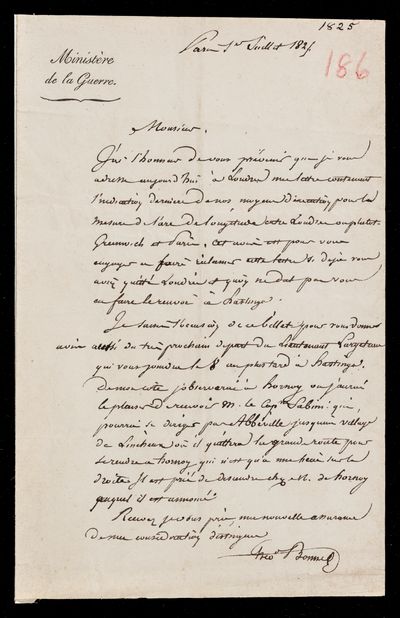 1825
Paris 1er Juillet 182
186
Ministère
de la Guerre.
Monsieur,
J'ai l'honneur de vous prévenir que je vous
adresse aujourd'hui à Londres une lettre contenant
l'indication dernière de nos moyens d'exécution pour la
mesure de l'arc de longitude entre Londres ou plutôt
Greenwich et Paris. Cet avis est pour vous
engager à faire réclamer cette lettre si déjà vous
aviez quitté Londres et qu'on ne dut pas vous
en faire le renvoi à Hastings.
Je saisis l'occasion de ce billet pour vous donner
avis aussi du très prochain départ du Lieutenant
qui vous joindra le 8 au plus tard à Hastings.
De mon côté j'observerai à Hornoy ou j'aurai
le plaisir de recevoir M. le Capne Sabine; qui,
pourrait se diriger par Abbéville jusqu'au village
de Lincheux où il quittera la grande route pour
se rendre à Hornoy qui n'est qu'à une heure sur la
droite. Il est prié de descendre chez M. de Hornoy
auquel il est annoncé.
Recevez je vous prie, une nouvelle assurance
de ma considération distinguée
Bonne